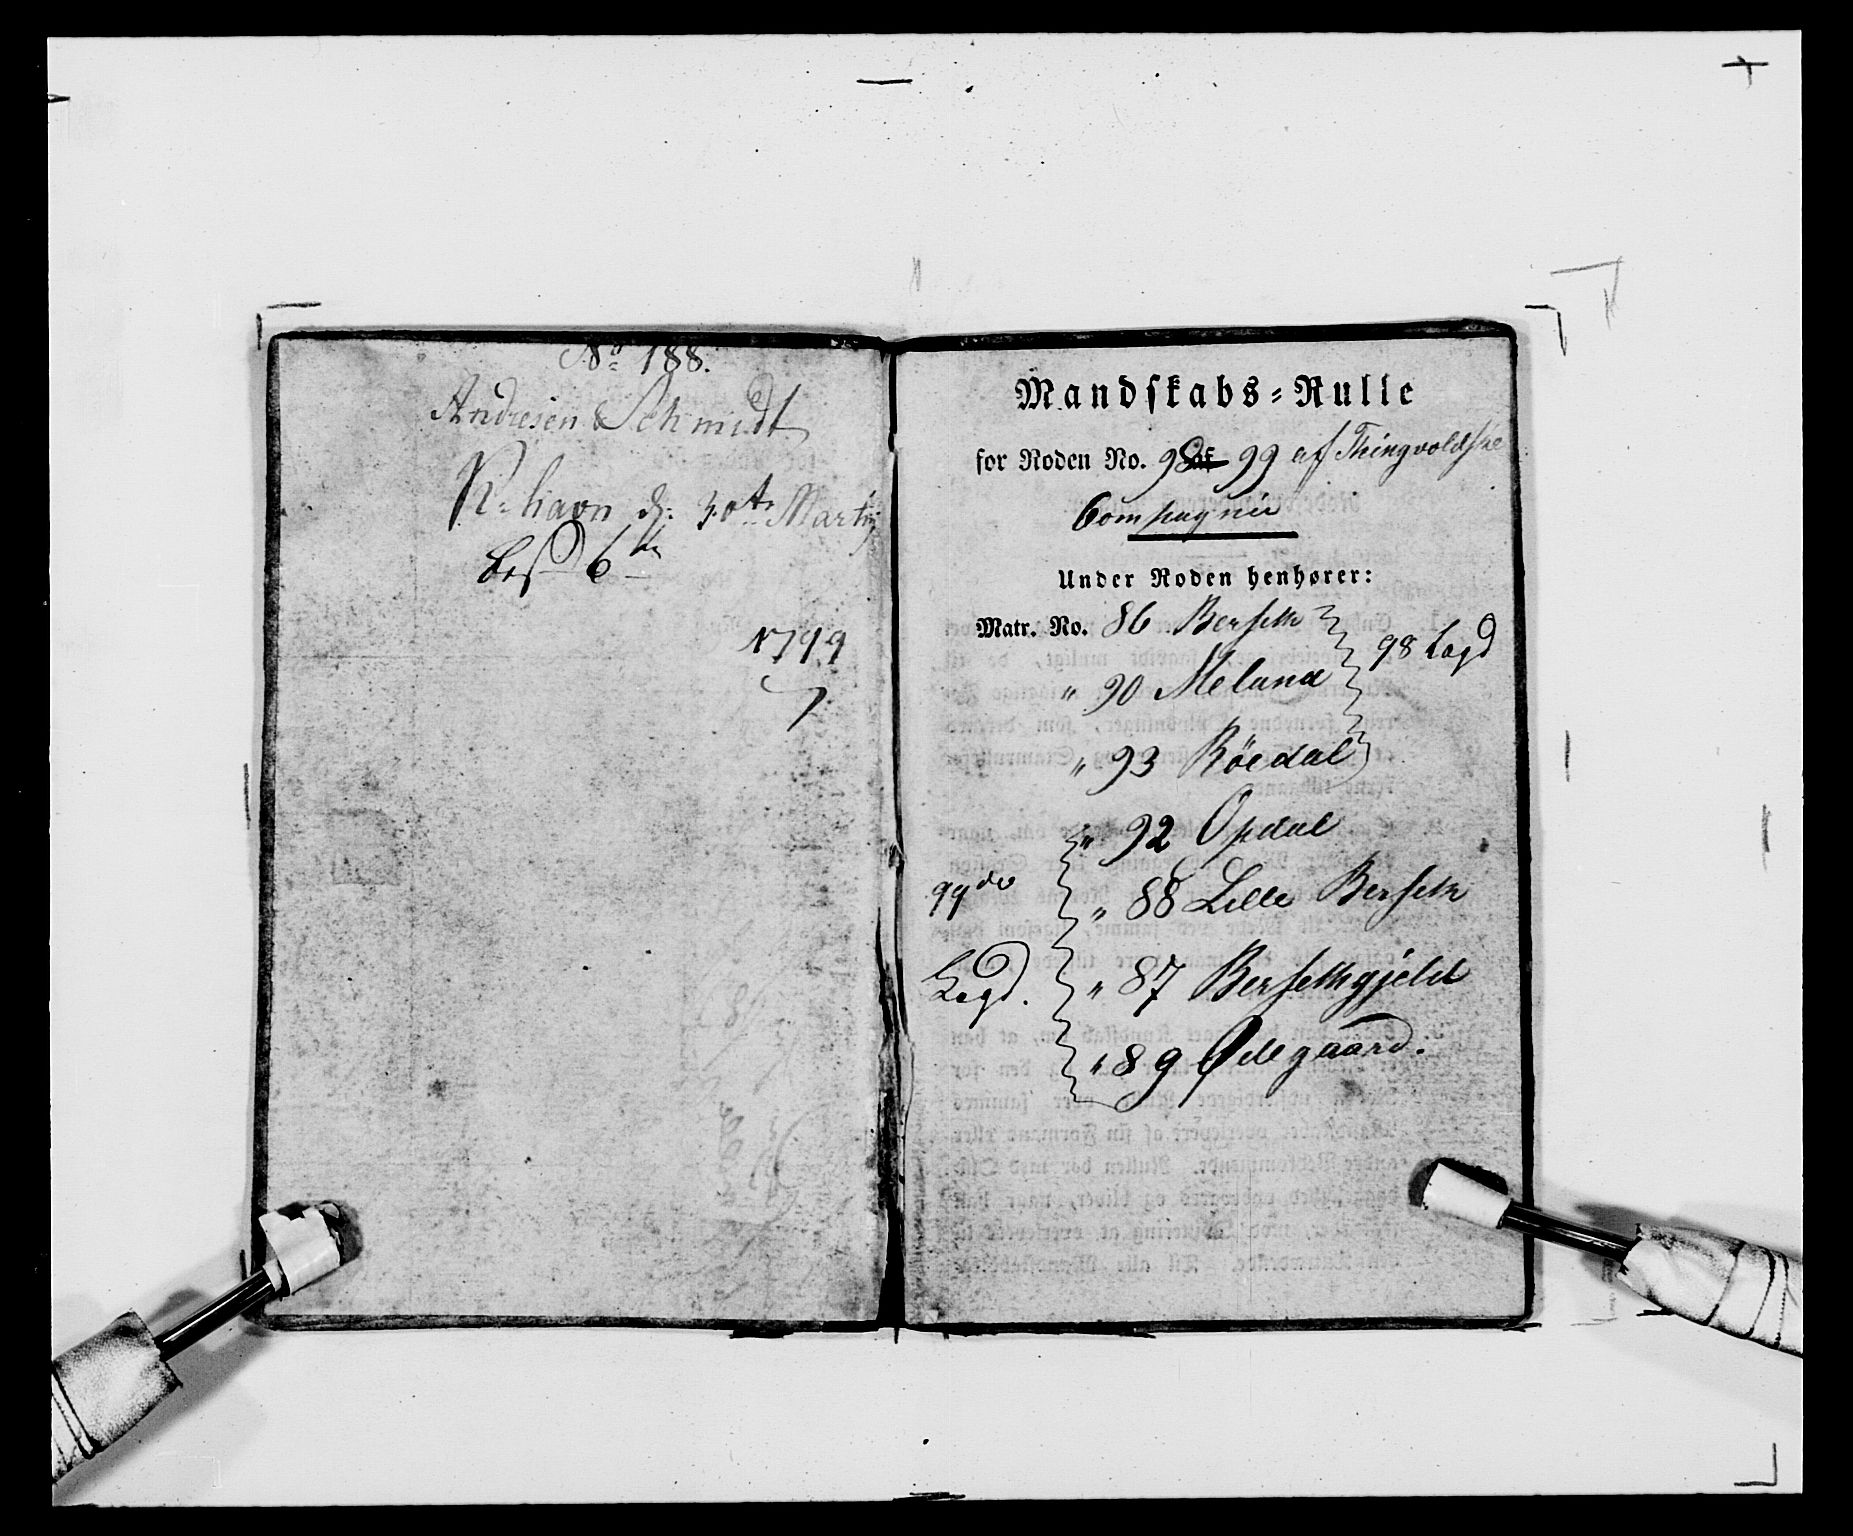 No 188.
Andresen & Schmidt
K. havn d: 30te Martij
6
1799
Mandskabs-Rulle
for Roden No. 98 af 99 af Thingvoldske
Compagnie
Under Roden henhører:
Matr. No. 86 Berseth
98 Lægd
" 90 Meland
" 93 Röedal
" 92 Opdal
99de
" 88 Lille Berseth
Lægd.
" 87 Bersethgjeld
" 89 Ødegaard.